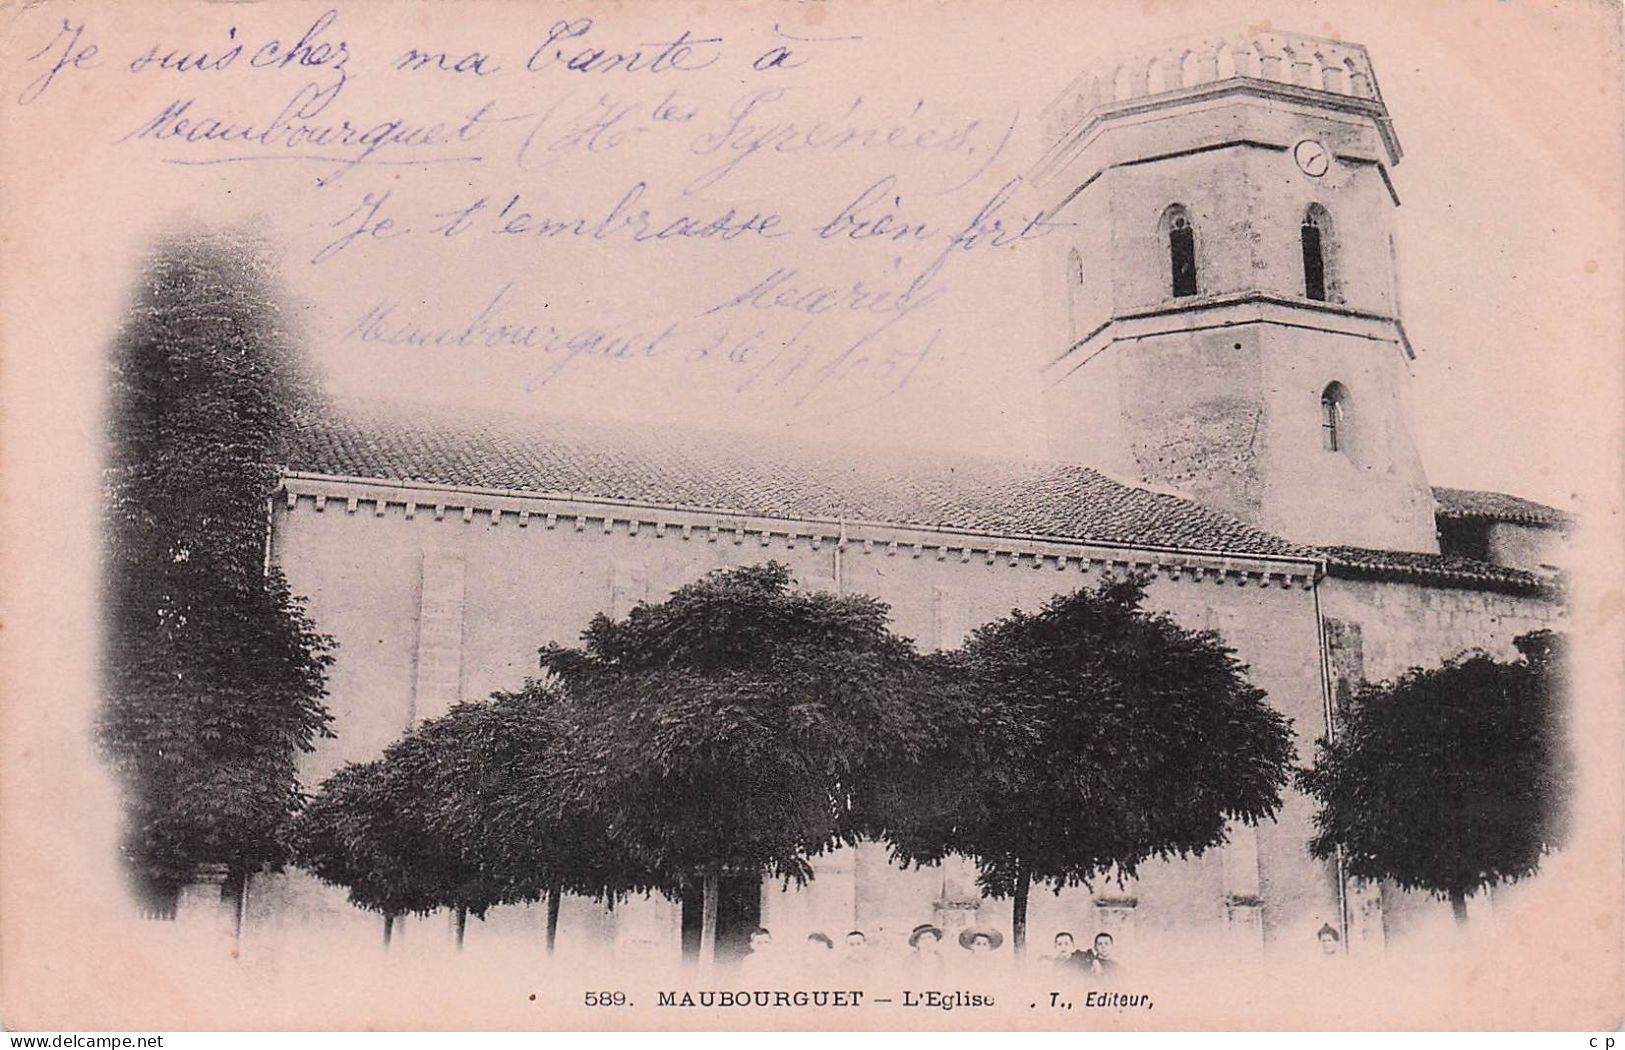 Je suis chez ma Tante à
Maubourguet (Htes Pyrénées.)
Je t'embrasse bien fort
Marie
Maubourguet 26/
589. MAUBOURGUET — L'Eglise . T., Editeur,
www.delcampe.net
c p